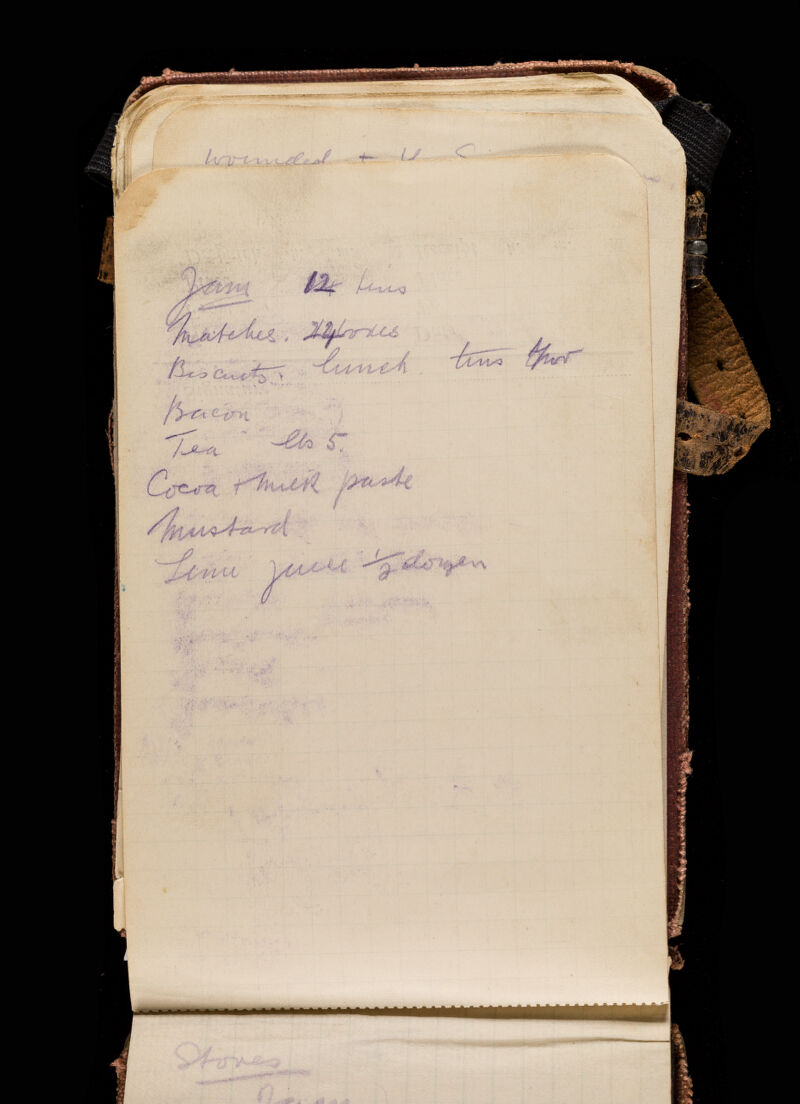 wounded +
Jam 12 tins
Matches. 24 boxes
Biscuits. lunch tins
Bacon
Tea lbs 5.
Cocoa + milk paste
Mustard
Lime juice 1/2 dozen
Stores
Jam